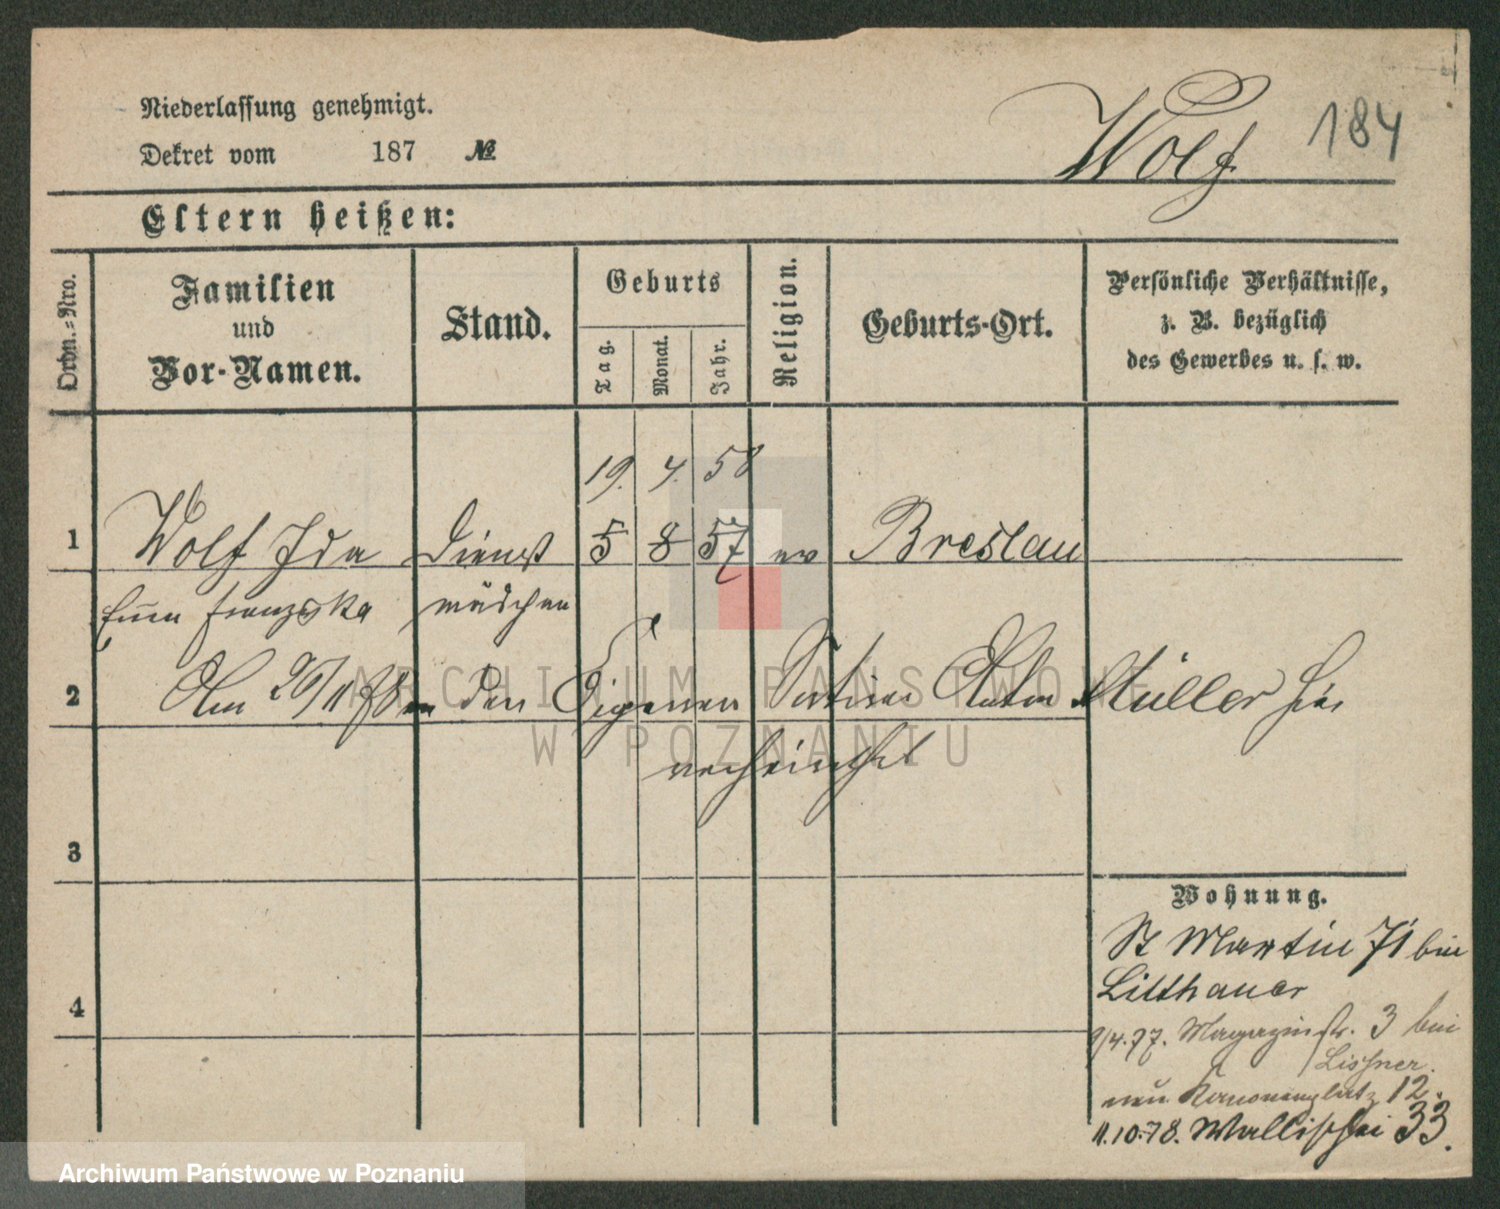 Niederlassung genehmigt.
Dekret vom 187 №
Wolf 184
Eltern heißen:
Ordn.=Nro.
Familien
und
Vor-Namen.
Stand.
Geburts
Tag.
Monat.
Jahr.
Religion.
Geburts-Ort.
Persönliche Verhältnisse,
z. B. bezüglich
des Gewerbes u. s. w.
19. 4. 58
1 Wolf Ida Dienst 5 8 57 ev Breslau
Franziska mädchen
2 Am 26/11 78 den Anton Müller hier
verheirathet
3
Wohnung.
St Martin 71 bei
Litthauer
4
9/4.77. Magazinstr. 3 bei
Lissner.
neu Kanonenplatz 12.
11.10.78. Wallischei 33.
ARCHIWUM PAŃSTWOWE
W POZNANIU
Archiwum Państwowe w Poznaniu